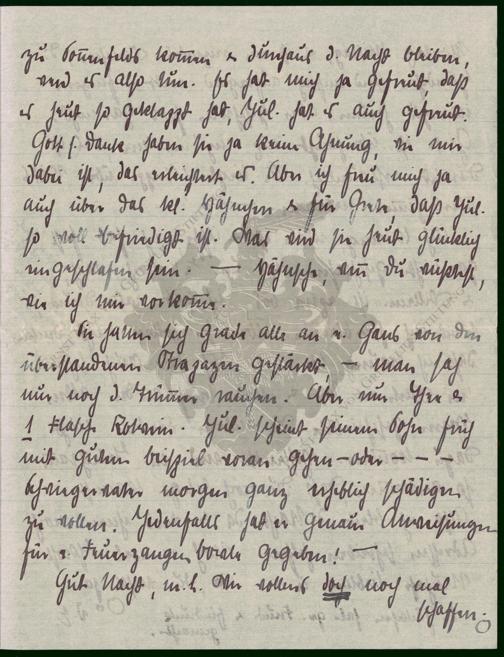 zu Sonnenfelds kommen & durchaus d. Nacht bleiben,
werd es also tun. Es hat mich ja gefreut, daß
es heut so geklappt hat, Jul. hat es auch gefreut.
Gott s. Dank haben sie ja keine Ahnung, wie mir
dabei ist, das erleichtert es. Aber ich freu mich ja
auch über das kl. Hähnchen & für Grete, daß Jul.
so voll befriedigt ist. Was wird sie heut glücklich
eingeschlafen sein. — Hähnche, wenn Du wüßtest,
wie ich mir vorkomme.
Sie hatten sich grade alle an e. Gans von den
überstandenen Strapazen gestärkt, — man sah
nur noch d. Trümmer rauchen. Aber nur Thee &
1 Flasche Rotwein. Jul. scheint seinem Sohn früh
mit gutem beispiel voran gehen – oder – – –
Schwiegervater morgen ganz erheblich schädigen
zu wollen. Jedenfalls hat er genaue Anweisungen
für e. Feuerzangenbowle gegeben! —
Gut Nacht, m. L. Wir wollens doch noch mal
schaffen.